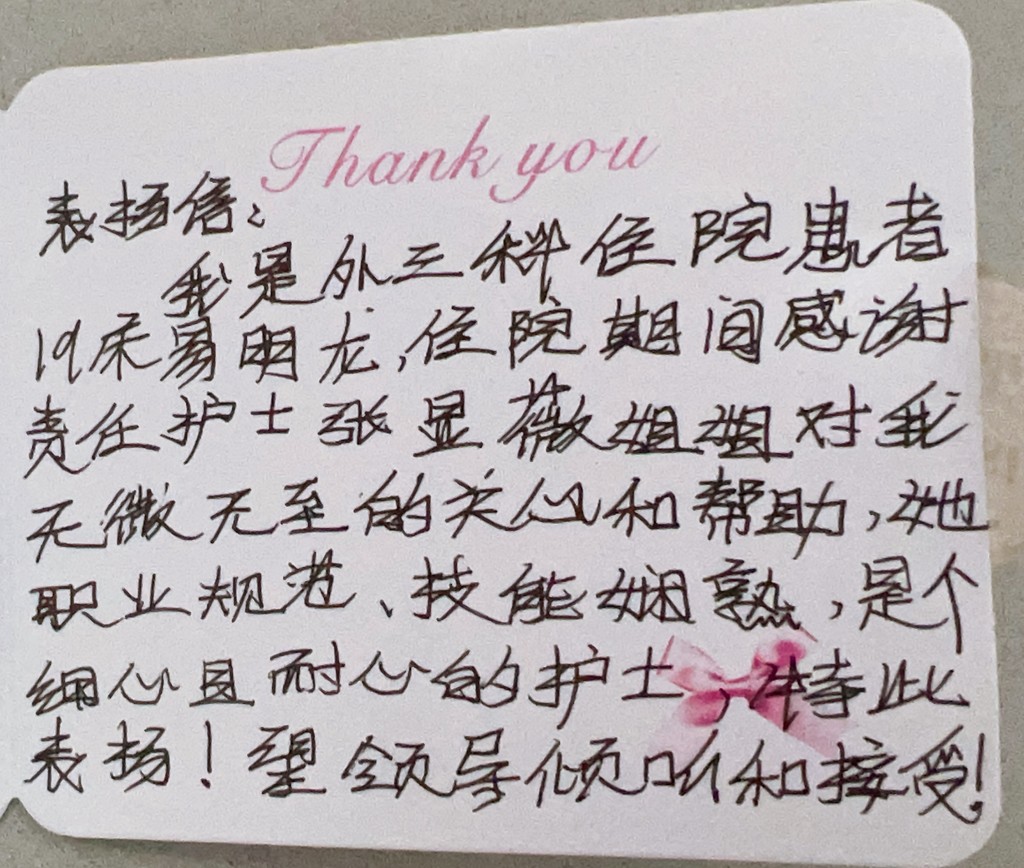 Thank you
表扬信:
我是外三科住院患者
19床易明龙,住院期间感谢
责任护士张显薇姐姐对我
无微无至的关心和帮助,她
职业规范、技能娴熟,是个
细心且耐心的护士,特此
表扬!望领导倾听和接受!